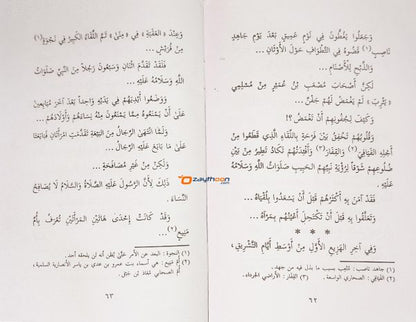 وَجَعَلُوا يَغُطُّونَ فِي نَوْمٍ عَمِيقٍ بَعْدَ يَوْمٍ جَاهِدٍ
نَاصِبٍ (١) قَضَوْهُ فِي التَّطْوَافِ حَوْلَ الْأَوْثَانِ ...
وَالذَّبْحِ لِلْأَصْنَامِ ...
لَكِنَّ أَصْحَابَ مُصْعَبِ بْنِ عُمَيْرٍ مِنْ مُسْلِمِي
«يَثْرِبَ» لَمْ يَغْمَضْ لَهُمْ جَفْنٌ ...
وَكَيْفَ لِجُفُونِهِمْ أَنْ تَغْمَضَ ؟!
وَقُلُوبُهُمْ تَخْفِقُ بَيْنَ فَرْحَةٍ بِاللِّقَاءِ الَّذِي قَطَعُوا مِنْ
أَجْلِهِ الْفَيَافِيَ (٢) وَالْقِفَارَ (٣) وَأَفْئِدَتُهُمْ تَكَادُ تَطِيرُ مِنْ بَيْنِ
ضُلُوعِهِمْ شَوْقاً لِرُؤْيَةِ نَبِيِّهِمُ الْحَبِيبِ صَلَوَاتُ اللَّهِ وَسَلَامُهُ
عَلَيْهِ ...
فَقَدْ آمَنَ بِهِ أَكْثَرُهُمْ قَبْلَ أَنْ يَسْعَدُوا بِلُقْيَاهُ ...
وَتَعَلَّقُوا بِهِ قَبْلَ أَنْ تَكْتَحِلَ أَعْيُنُهُمْ بِمَرْآهُ ...
* * *
وَفِي آخِرِ الْهَزِيعِ الْأَوَّلِ مِنْ أَوْسَطِ أَيَّامِ التَّشْرِيقِ،
(١) جاهد ناصب : متعب بسبب ما بذل فيه من جهد.
(٢) الفيافي : الصحاري الواسعة . (٣) القفار : الأراضي الجرداء.
٦٢
وَعِنْدَ «الْعَقَبَةِ» فِي «مِنًى» تَمَّ اللِّقَاءُ الْكَبِيرُ فِي نَجْوَةٍ (١)
مِنْ قُرَيْشٍ ...
فَقَدْ تَقَدَّمَ اثْنَانِ وَسَبْعُونَ رَجُلاً مِنَ النَّبِيِّ صَلَوَاتُ
اللَّهِ وَسَلَامُهُ عَلَيْهِ ...
وَوَضَعُوا أَيْدِيَهُمْ فِي يَدَيْهِ وَاحِداً بَعْدَ آخَرَ مُبَايِعِينَ
عَلَى أَنْ يَمْنَعُوهُ مِمَّا يَمْنَعُونَ مِنْهُ نِسَاءَهُمْ وَأَوْلَادَهُمْ ...
وَلَمَّا انْتَهَى الرِّجَالُ مِنَ الْبَيْعَةِ تَقَدَّمَتِ امْرَأَتَانِ فَبَايَعَتَا
عَلَى مَا بَايَعَ عَلَيْهِ الرِّجَالُ ...
وَلَكِنْ مِنْ غَيْرِ مُصَافَحَةٍ ...
ذَلِكَ لِأَنَّ الرَّسُولَ عَلَيْهِ الصَّلَاةُ وَالسَّلَامُ لَا يُصَافِحُ
النِّسَاءَ .
وَقَدْ كَانَتْ إِحْدَى هَاتَيْنِ الْمَرْأَتَيْنِ تُعْرَفُ بِأُمِّ
مَنِيعٍ (٢) ...
(١) النجوة : البعد عن الأمر حتى يُظن أنه لن يلحقه أحد.
(٢) أم منيع : هي أسماء بنت عمرو بن عدي بن ياسر الأنصارية السلمية،
أم الصحابي شباث بن خديج.
٦٣
zaythoon.com